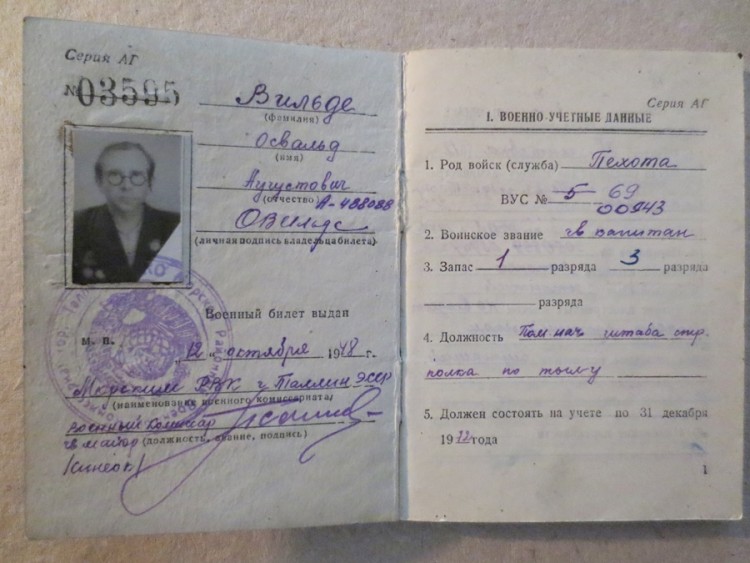 Серия АГ
№ 03595
Вильде
(фамилия)
Освальд
(имя)
Аугустович
(отчество) А-488088
ОВильде
(личная подпись владельца билета)
Военный билет выдан
М. п.
„12" октября 1948 г.
Морским РВК г Таллин ЭССР
(наименование военного комиссариата)
военный комиссар
гв майор (должность, звание, подпись)
/Синеок/
Серия АГ
I. ВОЕННО-УЧЕТНЫЕ ДАННЫЕ
1. Род войск (служба) Пехота
ВУС № 5 69
00943
2. Воинское звание гв капитан
3. Запас 1 разряда 3 разряда
разряда
4. Должность Пом нач штаба стр.
полка по тылу
5. Должен состоять на учете по 31 декабря
1972 года
1